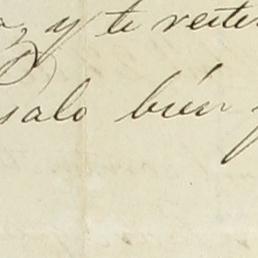 y te reite
salo bien